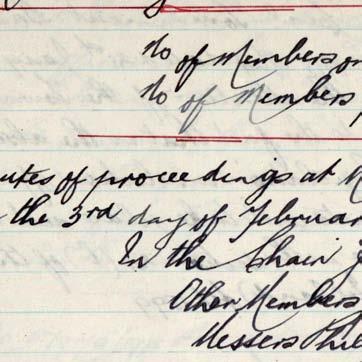 No of Members on
No of Members
utes of proceedings at M
the 3rd day of Februar
In the Chair J
Other Members
Messers Phil